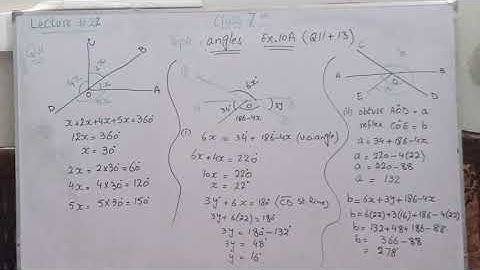 Lecture #22
Class 7th
Topic: angles Ex.10A (Q11 + 13)
Q11
C
B
4x
2x
x
O
A
5x
D
x+2x+4x+5x=360°
12x = 360°
x = 30°
2x = 2×30=60°
4x = 4×30=120°
5x = 5×30=150°
6x
34
O
3y
186-4x
(i) 6x = 34 + 186-4x (v.o angle)
6x+4x = 220
10x = 220
x = 22°
3y + 6x = 180 (CD st. line)
3y + 6(22) = 180
3y = 180-132°
3y = 48°
y = 16°
C
B
A
B
O
E
D
(ii) obtuse AÔD = a
reflex CÔE = b
a = 34+186-4x
a = 220-4(22)
a = 220-88
a = 132
b = 6x+3y+186-4x
b = 6(22)+3(16)+186-4(22)
b = 132+48+186-88
b = 366-88
= 278°